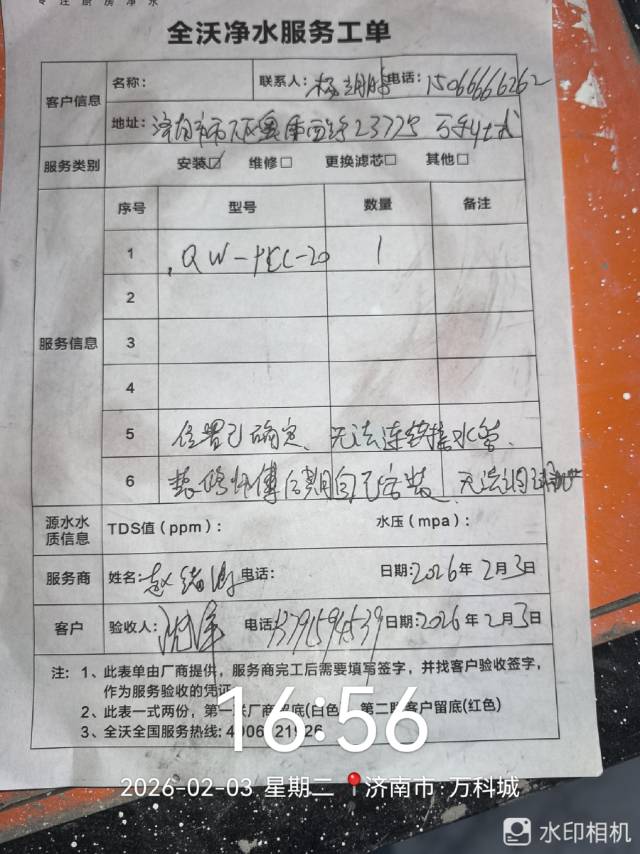 专注厨房净水
全沃净水服务工单
客户信息 名称： 联系人： 电话：15066666262
地址：济南市
服务类别 安装☑ 维修□ 更换滤芯□ 其他□
服务信息 序号 型号 数量 备注
1 QW-PEC-20 1
2
3
4
5 位置已确定、无法连续接水管.
6 装修师傅后期自己安装 无法调试
源水水质信息 TDS值（ppm）： 水压（mpa）：
服务商 姓名：赵 电话： 日期:2026年2月3日
客户 验收人： 电话 日期:2026年2月3日
注：1、此表单由厂商提供，服务商完工后需要填写签字，并找客户验收签字，
作为服务验收的凭证
2、此表一式两份，第一联厂商留底(白色) 第二联客户留底(红色)
3、全沃全国服务热线:
16:56
2026-02-03 星期二 济南市·万科城
水印相机